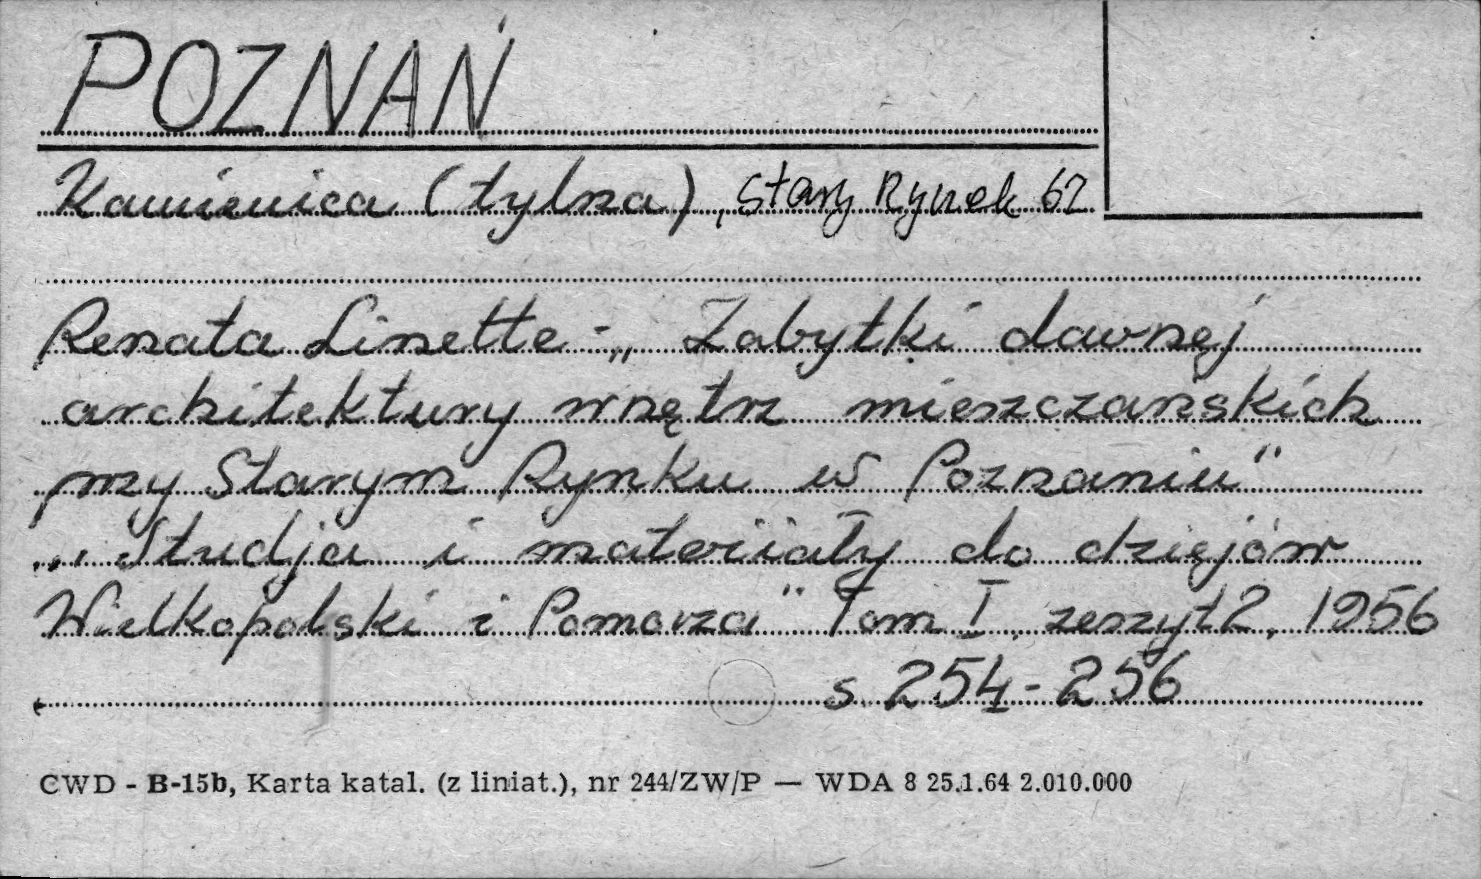 POZNAŃ
Kamienica (tylna), Stary Rynek 62
Renata Linette - „Zabytki dawnej
architektury wnętrz mieszczańskich
przy Starym Rynku w Poznaniu"
„Studja i materiały do dziejów
Wielkopolski i Pomorza" Tom I, zeszyt 2, 1956
s. 254-256
CWD - B-15b, Karta katal. (z liniat.), nr 244/ZW/P — WDA 8 25.1.64 2.010.000